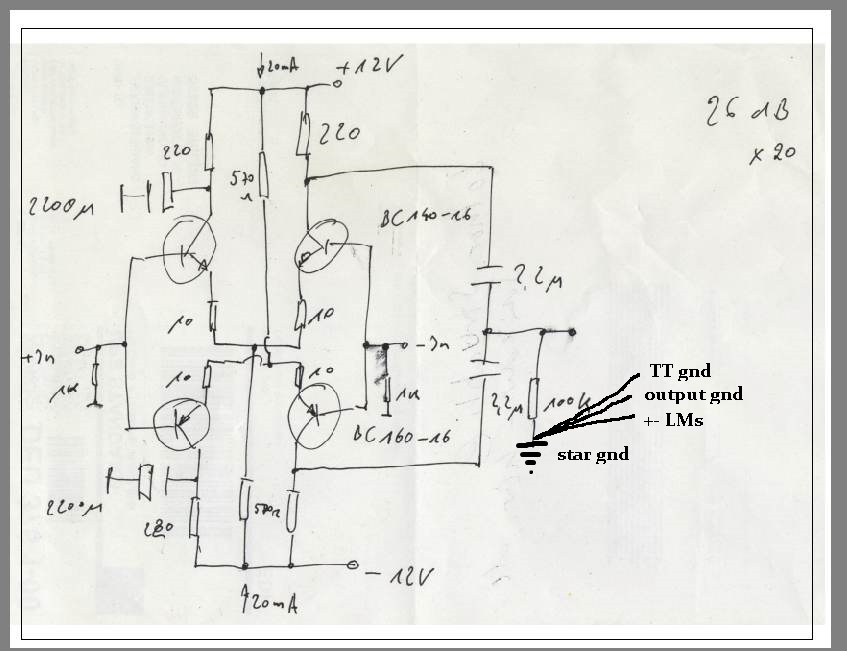 20mA
+12V
26 dB
x 20
220
220
570
2200µ
BC140-16
2,2µ
10
10
+In
-In
1K
10
10
1K
2,2µ
100K
TT gnd
output gnd
+- LMs
star gnd
BC160-16
2200µ
220
570
-12V
20mA